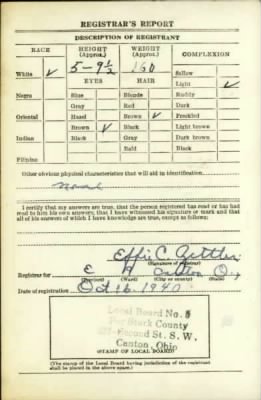 REGISTRAR'S REPORT
DESCRIPTION OF REGISTRANT
RACE HEIGHT (Approx.) WEIGHT (Approx.) COMPLEXION
White ✓ 5-9½ 160 Sallow
EYES HAIR Light ✓
Negro Blue Blonde Ruddy
Gray Red Dark
Oriental Hazel Brown ✓ Freckled
Brown ✓ Black Light brown
Indian Black Gray Dark brown
Bald Black
Filipino
Other obvious physical characteristics that will aid in identification
None
I certify that my answers are true; that the person registered has read or has had
read to him his own answers; that I have witnessed his signature or mark and that
all of his answers of which I have knowledge are true, except as follows:
Effie C.
(Signature of registrar)
Registrar for E Canton O.
(Ward) (City or county) (State)
Date of registration Oct 16 1940
Local Board No. 5
For Stark County
Second St. S. W.
Canton, Ohio
(STAMP OF LOCAL BOARD)
(The stamp of the Local Board having jurisdiction of the registrant
shall be placed in the above space.)